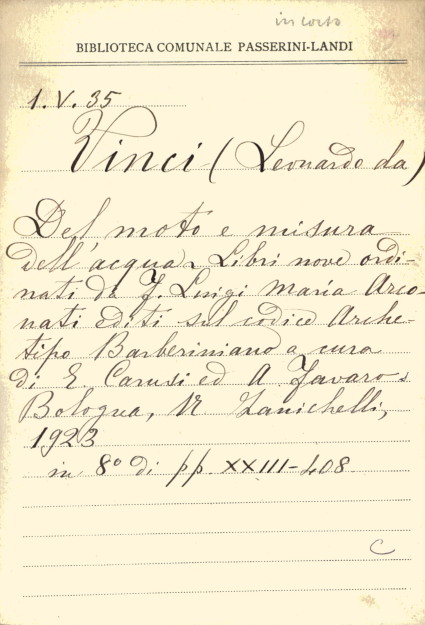 in corso
BIBLIOTECA COMUNALE PASSERINI-LANDI
1. V. 35
Vinci (Leonardo da)
Del moto e misura
dell'acqua. Libri nove ordi-
nati da F. Luigi Maria Arco-
nati editi sul codice Arche-
tipo Barberiniano a cura
di E. Carusi ed A. Favaro.
Bologna, N. Zanichelli,
1923
in 8º di pp. XXIII-408
C